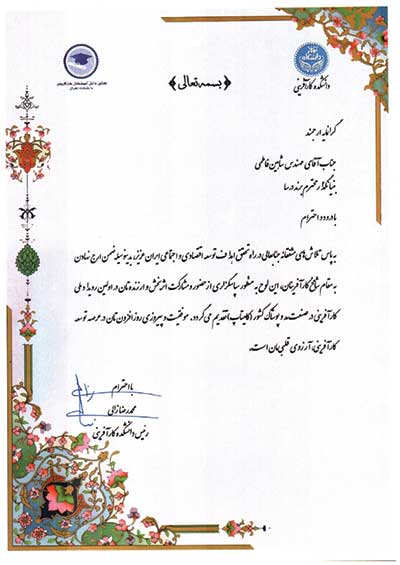 دانشکده کارآفرینی
﴿بسمه تعالی﴾
گرانمایه ارجمند
جناب آقای مهندس شاهین فاطمی
بنیانگذار محترم برند درسا
با درود و احترام
به پاس تلاش‌های مشفقانه جنابعالی در راه تحقق اهداف توسعه اقتصادی و اجتماعی ایران عزیز، بدینوسیله ضمن ارج نهادن
به مقام شامخ کارآفرینان، این لوح به منظور سپاسگزاری از حضور و مشارکت اثربخش و ارزنده‌تان در اولین رویداد ملی
کارآفرینی در صنعت مد و پوشاک کشور (کامیتاپ) تقدیم می گردد. موفقیت و پیروزی روزافزون‌تان در عرصه توسعه
کارآفرینی، آرزوی قلبی‌مان است.
با احترام
محمدرضا زالی
رئیس دانشکده کارآفرینی